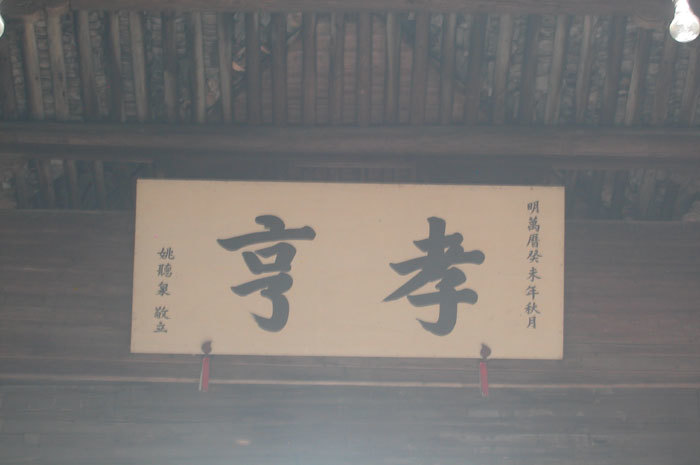 明萬曆癸未年秋月
孝亨
姚聽泉 敬立